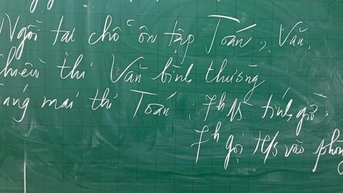 Ngồi tại chỗ ôn tập Toán, Văn.
chiều thi Văn bình thường
sáng mai thi Toán. 7h15 tính giờ.
7h gọi HS vào phòng